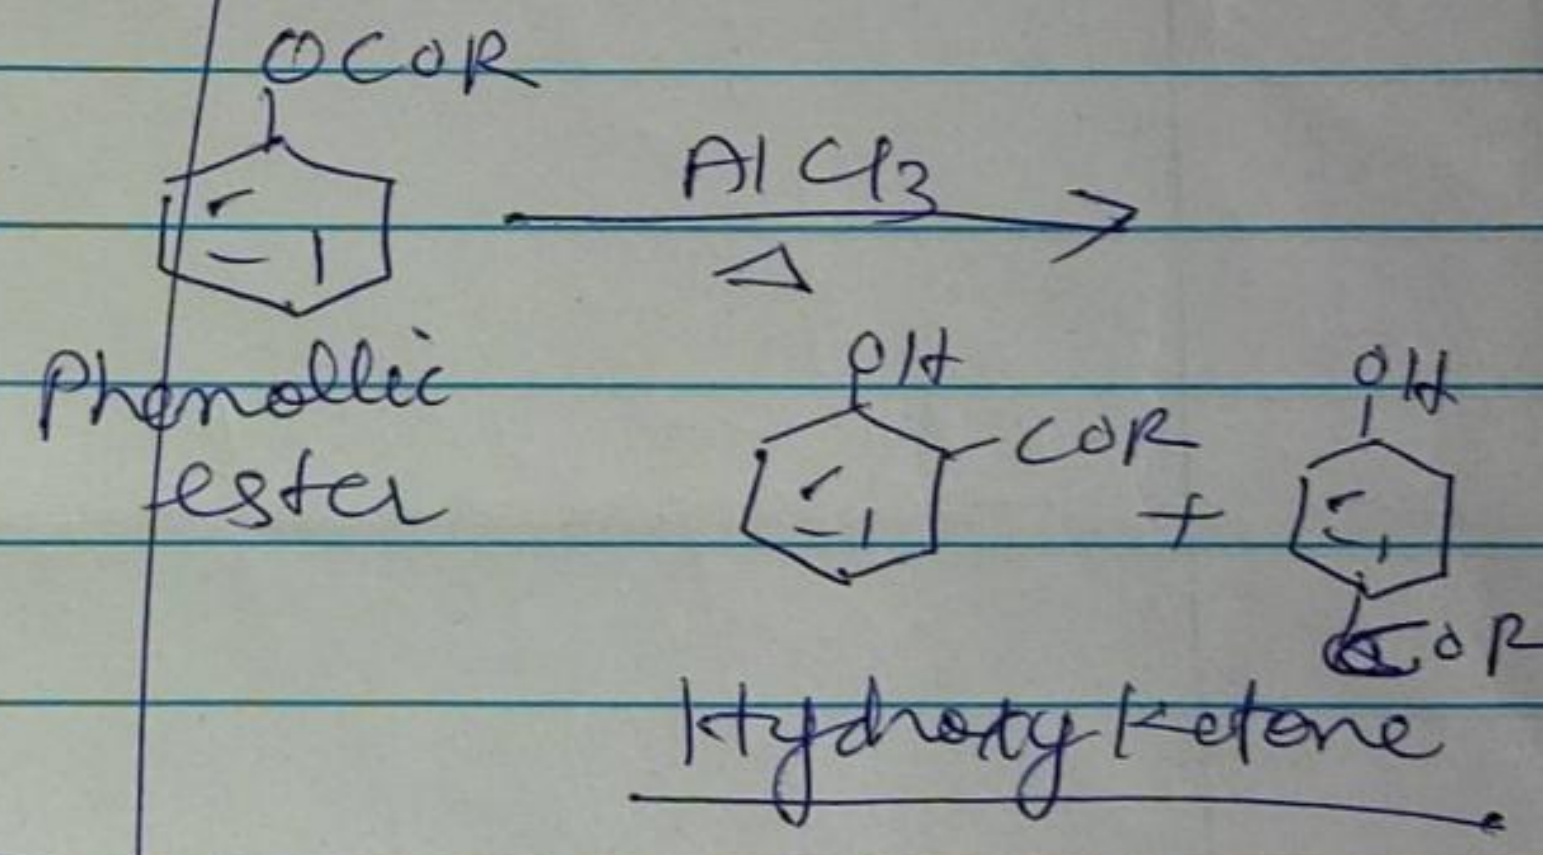 OCOR
AlCl3
Δ
Phenollic
ester
OH
COR
+
OH
COR
Hydroxy Ketone